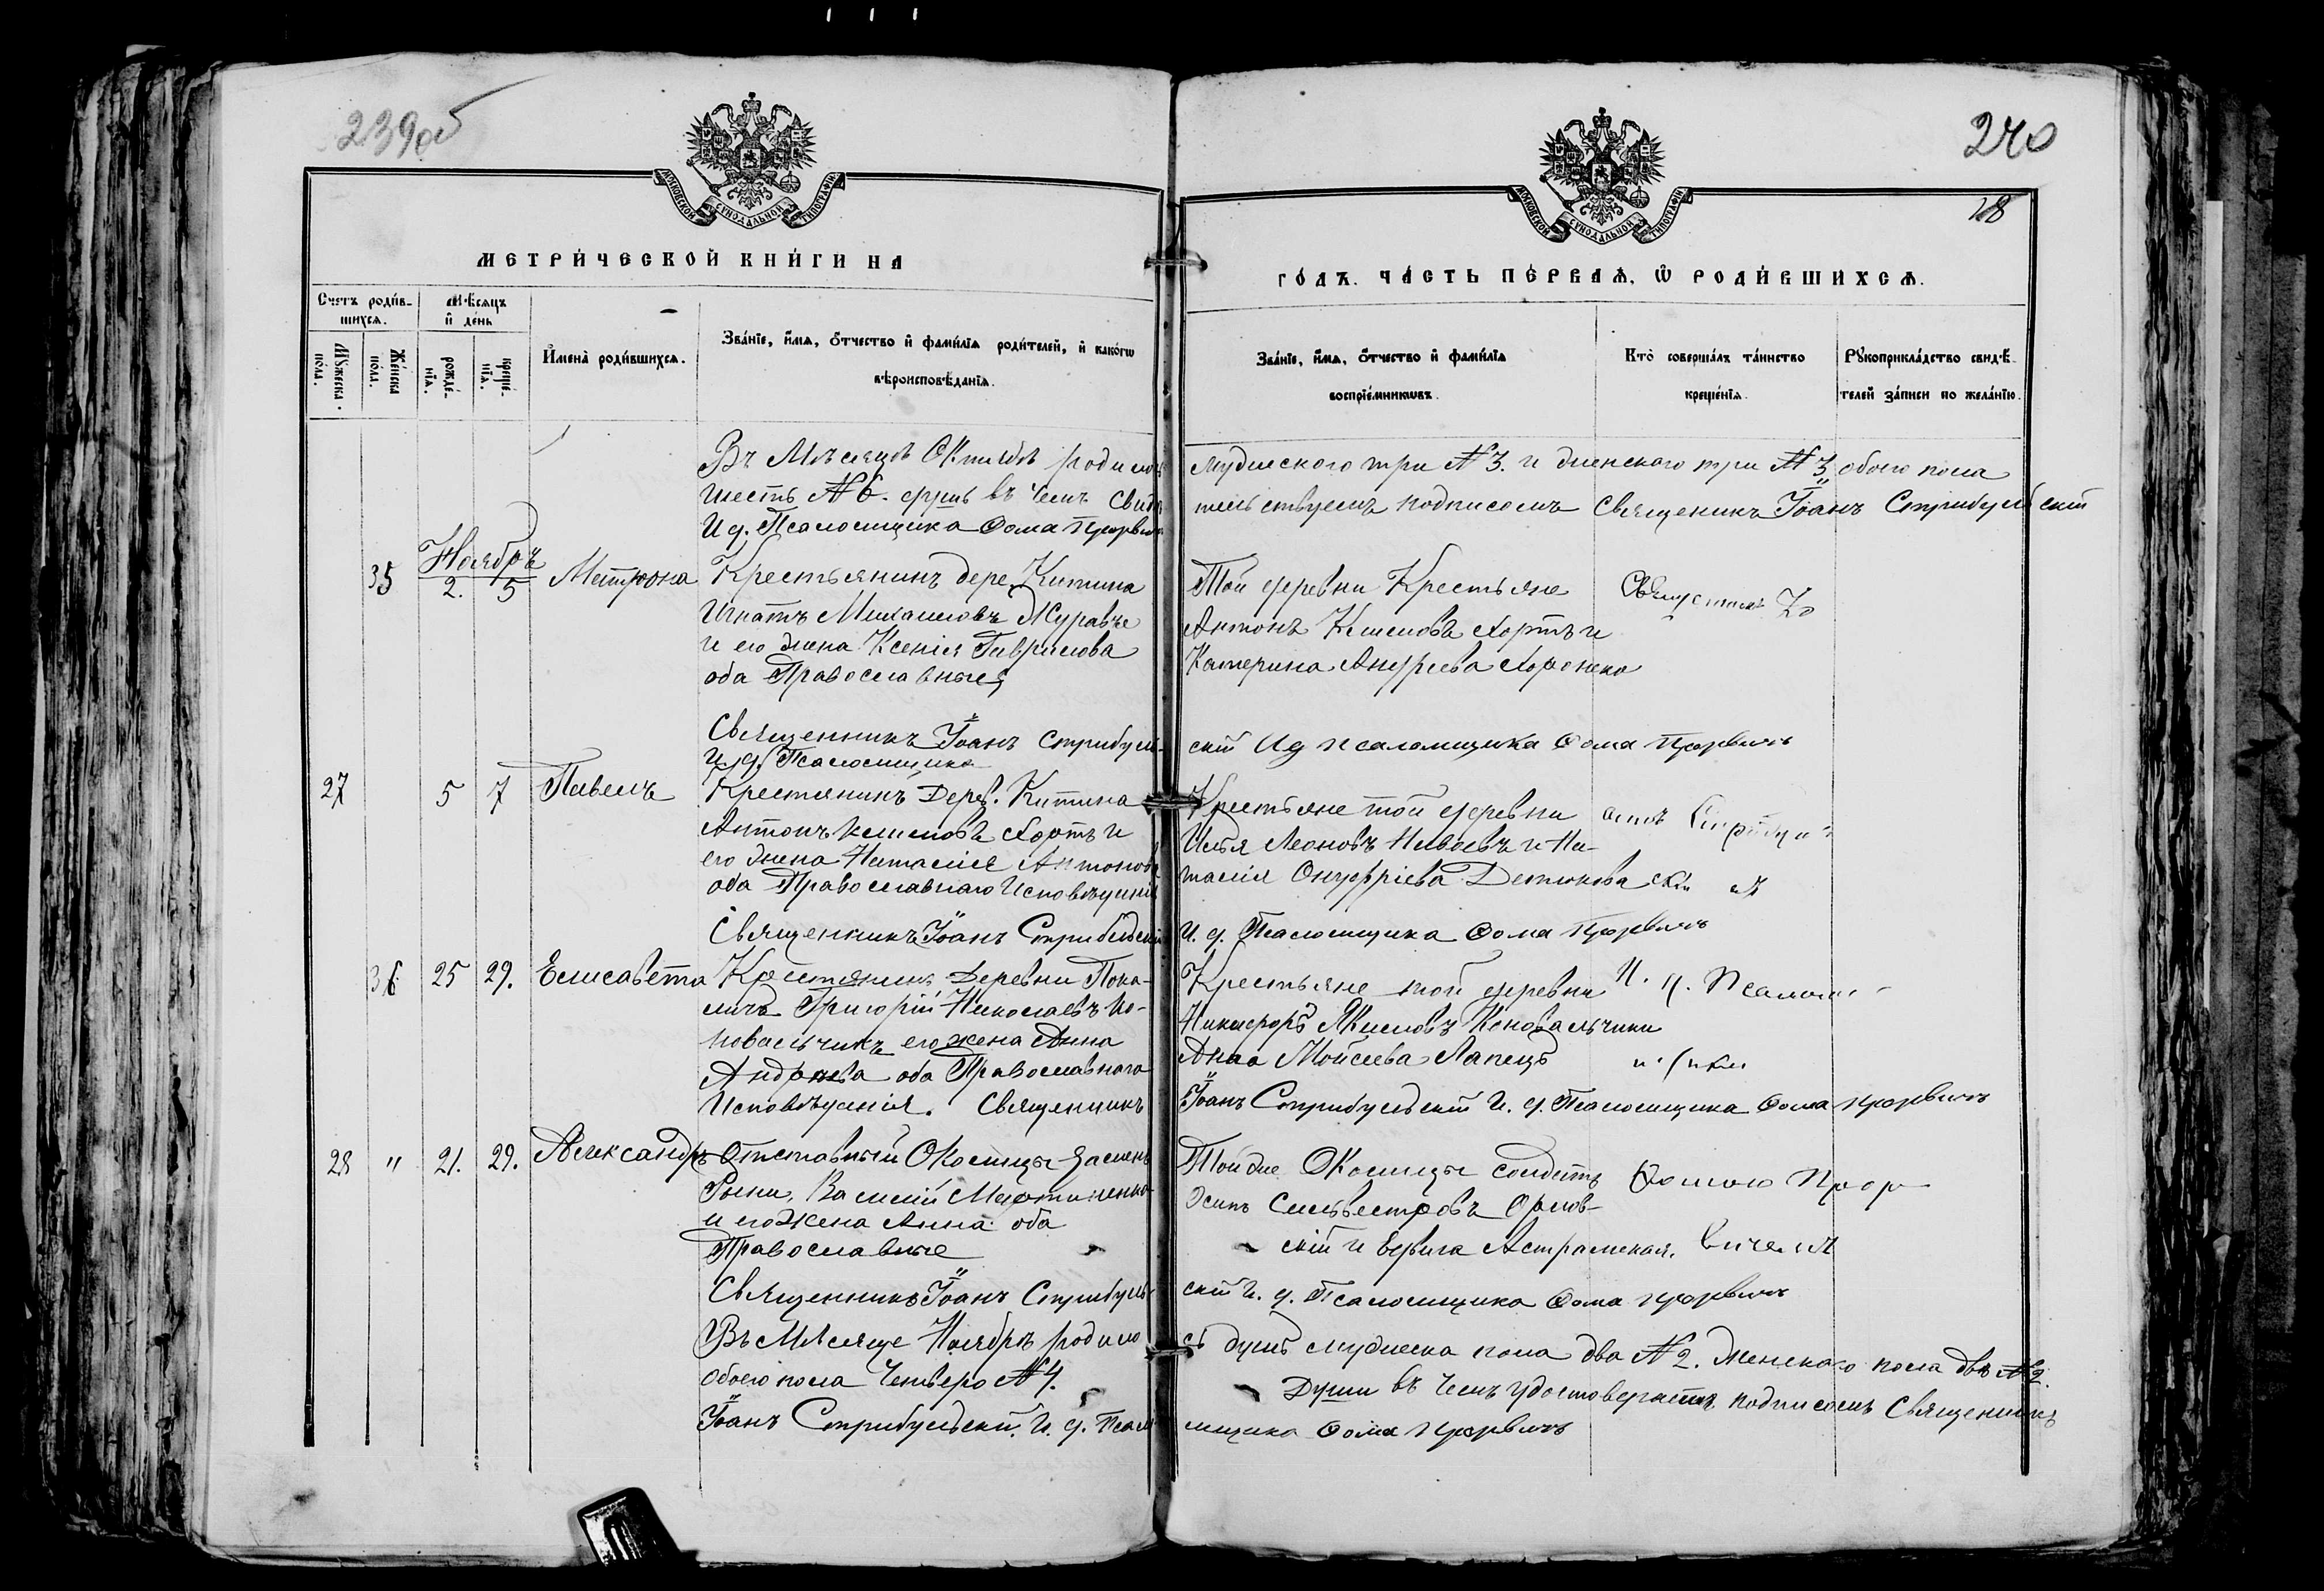 239об
МОСКОВСКОЙ СУНОДАЛЬНОЙ ТИПОГРАФІИ
МЕТРИ́ЧЕСКОЙ КНИ́ГИ НА
Счетъ роди́вшихся.
Мꙋжеска по́ла.
Же́нска по́ла.
Мѣ́сяцъ и҆ де́нь
рожде́нїѧ.
креще́нїѧ.
И҆мена̀ роди́вшихсѧ.
Зва́нїе, и҆́мѧ, ѻ҆́тчество и҆ фами́лїѧ роди́телей, и҆ како́гѡ
вѣроисповѣ́данїѧ.
Въ Мѣсяцѣ Октябѣ родилось
шесть № 6. душъ въ чемъ свидѣ
И д. Псаломщика Ѳома
35
Ноябрь
2. 5
Матрона
Крестьянинъ дере. Китина
Игнатъ Михаиловъ Журавле
и его жена Ксенія Гаврилова
оба Православные
Священникъ Іоанъ Стрибуль-
И д. Псаломщика
27
5 7
Павелъ
Крестянинъ Дерев. Китина
Антонъ Хортъ и
его жена Наталія Антонова
оба Православнаго Исповѣданія
Священникъ Іоанъ Стрибульскій
36 25 29. Елисавета
Крестянинъ Деревни Пока-
личъ Григорій Николаевъ Ко-
новальчикъ его жена Анна
Андреева оба Православнаго
Исповѣданія. Священникъ
28 " 21. 29. Александръ
Отставный Околицы
Василій Мартиненко
и его Жена Анна оба
Православные
Священникъ Іоанъ Стрибуль
Въ Мѣсяце Ноябрѣ родило
обоего пола Четверо № 4.
Іоанъ Стрибульскій. И. д. Псал
240
18
МОСКОВСКОЙ СУНОДАЛЬНОЙ ТИПОГРАФІИ
ГО́ДЪ. ЧА́СТЬ ПЕ́РВАѦ, Ѡ҆ РОДИ́ВШИХСѦ.
Зва́нїе, и҆́мѧ, ѻ҆́тчество и҆ фами́лїѧ
воспрїе́мникѡвъ.
Кто̀ соверша́лъ та́инство
креще́нїѧ.
Рꙋкоприкла́дство свидѣ́-
телей за́писи по жела́нїю.
мужеского три № 3. и женского три № 3 обоего пола
тельствуемъ подписомъ Священикъ Іоанъ Стрибульскій
Той деревни Крестьяне
Антонъ Хортъ и
Катерина Андреева
Священникъ Іо
скій И д псаломщика Ѳома
Крестьяне той деревни
Илья Леоновъ и На-
талія Онуфріева
анъ Стрибуль
скій
И. д. Псаломщика Ѳома
Крестьяне той деревни
Никифоръ Якимовъ Коновальчики
Анна Мойсеева Лапецъ
И. д. Псалом
Іоанъ Стрибульскій И. д. Псаломщика Ѳома
Той же Околицы солдатъ
Осипъ Сильвестровъ Орлов-
скій и
Ѳомою
скій И. д. Псаломщика Ѳома
сь душъ мужеска пола два № 2. Женскаго пола двѣ № 2.
Души въ чемъ удостоверяемъ подписомъ Священникъ
мщика Ѳома